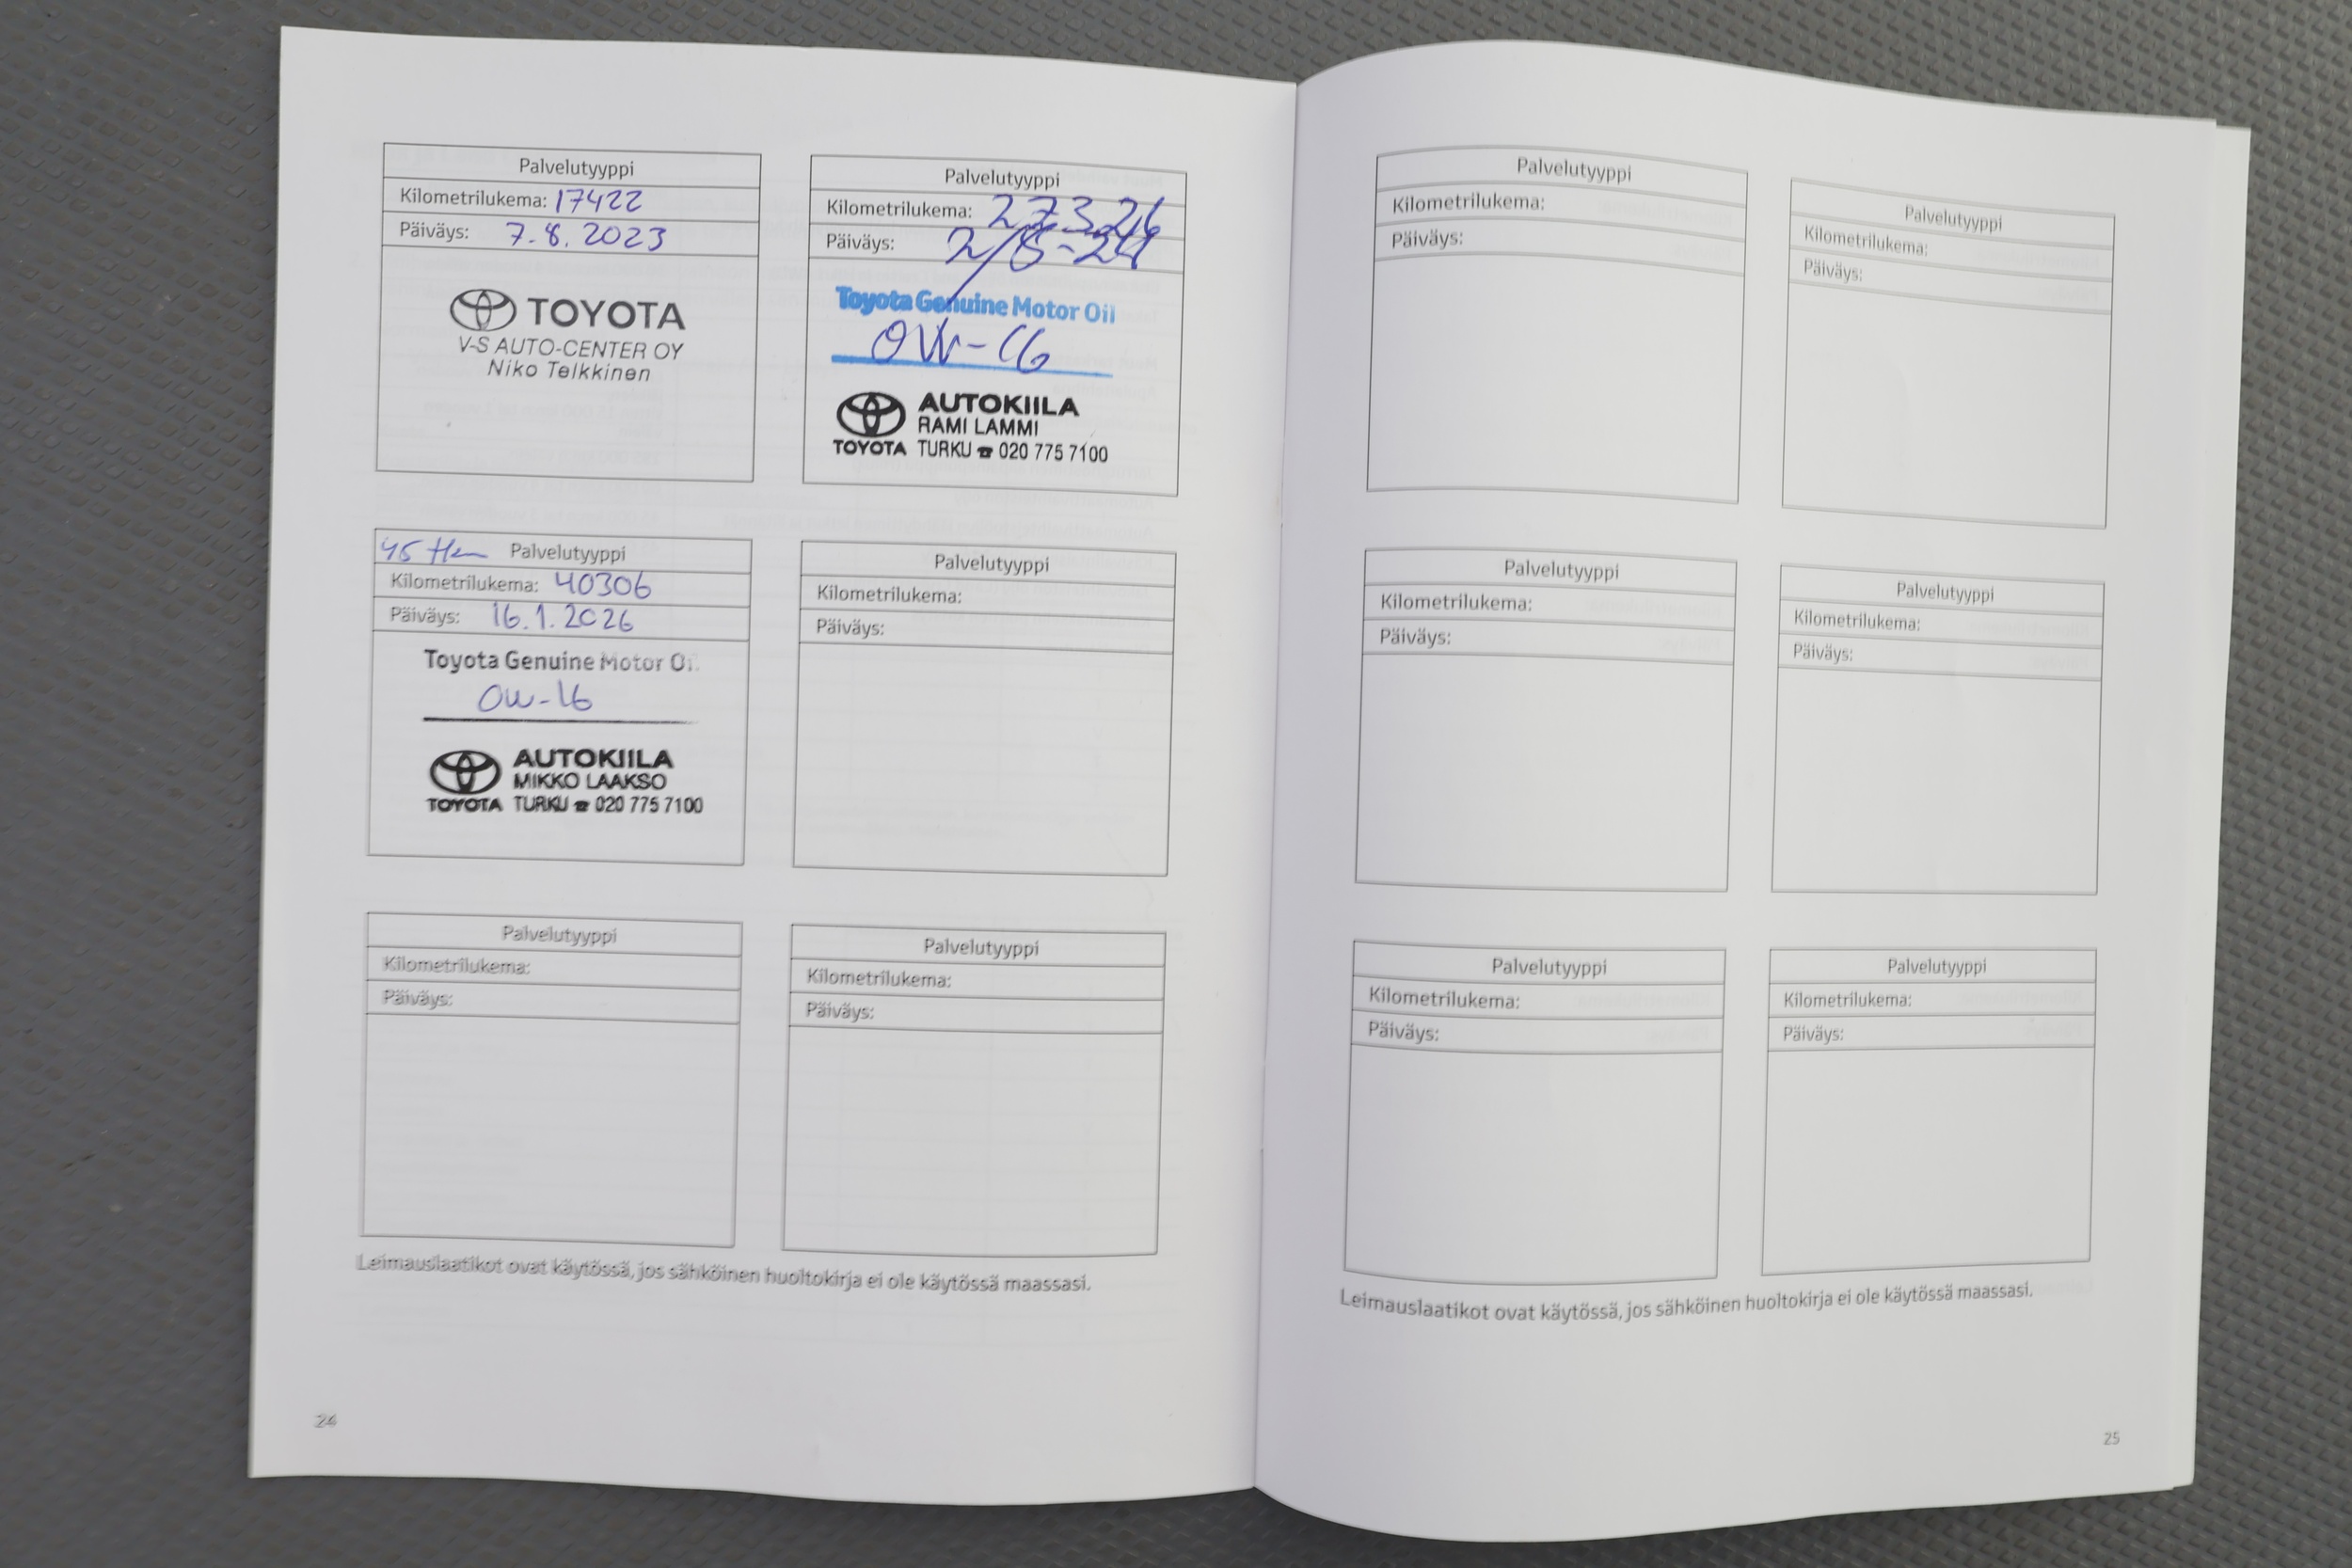 Palvelutyyppi
Kilometrilukema: 17422
Päiväys: 7.8.2023
TOYOTA
V-S AUTO-CENTER OY
Niko Telkkinen
Palvelutyyppi
Kilometrilukema: 27326
Päiväys: 2/8-24
Toyota Genuine Motor Oil
0W-16
AUTOKIILA
RAMI LAMMI
TOYOTA TURKU ☎ 020 775 7100
45 Palvelutyyppi
Kilometrilukema: 40306
Päiväys: 16.1.2026
Toyota Genuine Motor Oil
0W-16
AUTOKIILA
MIKKO LAAKSO
TOYOTA TURKU ☎ 020 775 7100
Palvelutyyppi
Kilometrilukema:
Päiväys:
Palvelutyyppi
Kilometrilukema:
Päiväys:
Palvelutyyppi
Kilometrilukema:
Päiväys:
Leimauslaatikot ovat käytössä, jos sähköinen huoltokirja ei ole käytössä maassasi.
24
Palvelutyyppi
Kilometrilukema:
Päiväys:
Palvelutyyppi
Kilometrilukema:
Päiväys:
Palvelutyyppi
Kilometrilukema:
Päiväys:
Palvelutyyppi
Kilometrilukema:
Päiväys:
Palvelutyyppi
Kilometrilukema:
Päiväys:
Palvelutyyppi
Kilometrilukema:
Päiväys:
Leimauslaatikot ovat käytössä, jos sähköinen huoltokirja ei ole käytössä maassasi.
25